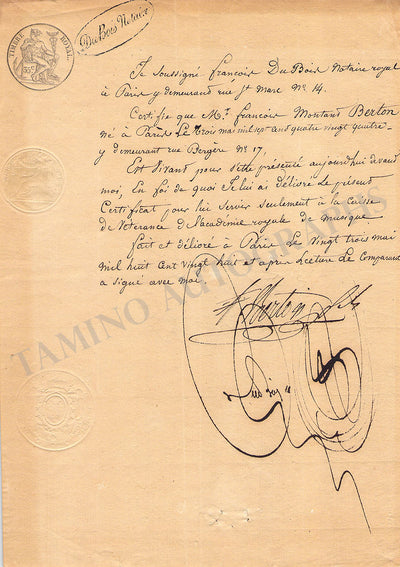 TIMBRE ROYAL
DuBois Notaire
Je soussigné françois DuBois Notaire royal
à Paris y demeurant rue St Marc No. 14.
Certifie que Mr. françois Montand Berton
né à Paris Le trois mai mil sept cent quatre vingt quatre
y demeurant rue Bergère No. 17.
Est Vivant pour s'être présenté aujourd'hui devant
moi, En foi de quoi Je lui ai délivré le présent
Certificat pour lui Servir Seulement à la Caisse
de Vétérance de L'académie royale de Musique
fait et délivré à Paris Le Vingt trois mai
mil huit Cent Vingt huit et après Lecture Le Comparant
a signé avec moi.
Berton
DuBois
TAMINO AUTOGRAPHS